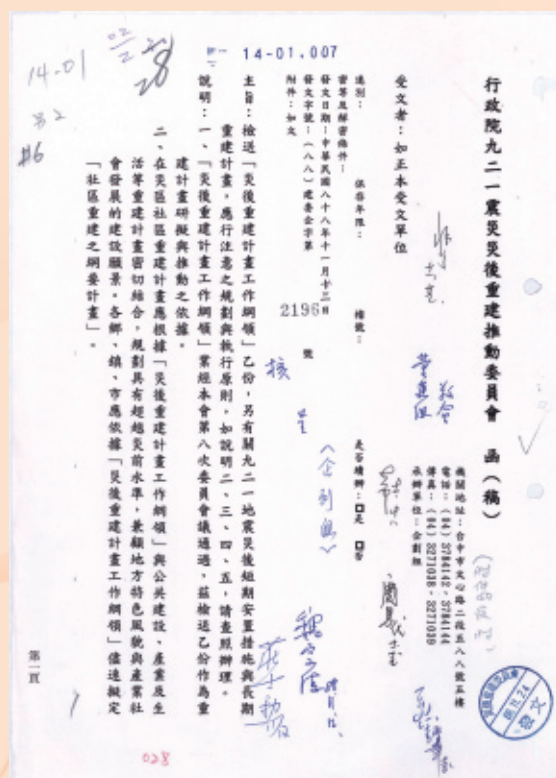 14-01.007
14-01
第2
#6
行政院九二一震災災後重建推動委員會 函(稿)
機關地址：台中市文心路二段五八八號五樓
電話：(04) 3784142、3784144
傳真：(04) 3271038、3271039
承辦單位：企劃組
受文者：如正本受文單位
速別：
保存年限：
檔號：
密等及解密條件：
是否續辦：□是 □否
發文日期：中華民國八十八年十一月十三日
發文字號：(八八)建委企字第2196號
附件：如文
主旨：檢送「災後重建計畫工作綱領」乙份，另有關九二一地震災後短期安置措施與長期
重建計畫，應行注意之規劃與執行原則，如說明二、三、四、五，請查照辦理。
說明：一、「災後重建計畫工作綱領」業經本會第八次委員會議通過，茲檢送乙份作為重
建計畫研擬與推動之依據。
二、在災區社區重建計畫應根據「災後重建計畫工作綱領」與公共建設、產業及生
活等重建計畫密切結合，規劃具有超越災前水準，兼顧地方特色風貌與產業社
會發展的建設願景。各鄉、鎮、市應依據「災後重建計畫工作綱領」儘速擬定
「社區重建之綱要計畫」。
核
(企劃組)
發文
第一頁
028